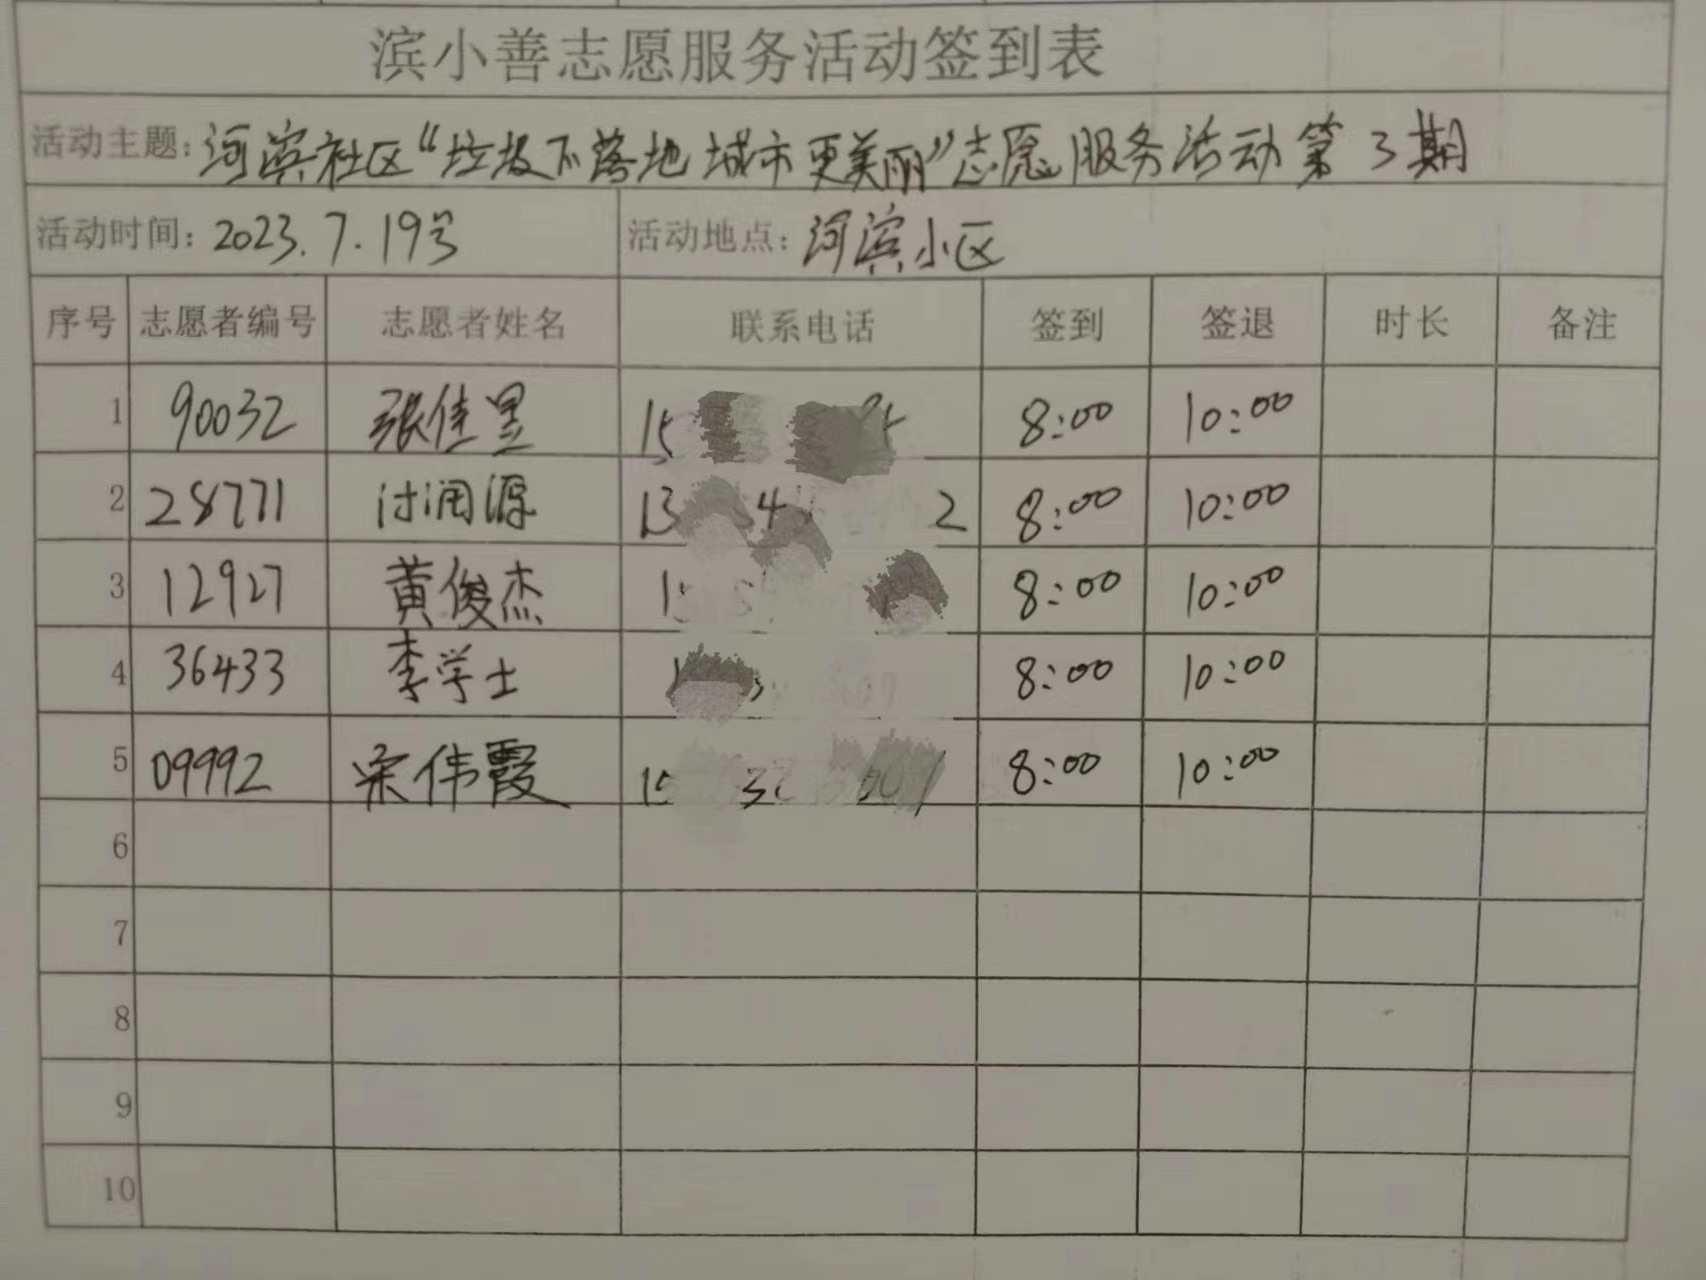 滨小善志愿服务活动签到表
活动主题: 河滨社区“垃圾不落地 城市更美丽”志愿服务活动第3期
活动时间: 2023.7.19号 活动地点: 河滨小区
序号 志愿者编号 志愿者姓名 联系电话 签到 签退 时长 备注
1 90032 张佳昱 8:00 10:00
2 28771 付润源 13 4 2 8:00 10:00
3 12927 黄俊杰 8:00 10:00
4 36433 李学士 8:00 10:00
5 09992 宋伟霞 8:00 10:00
6
7
8
9
10